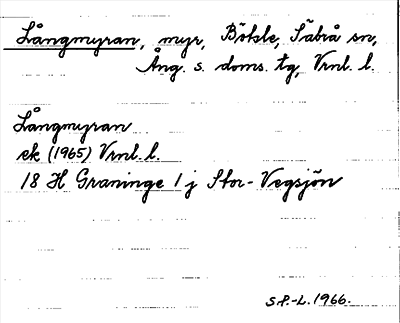 Långmyran, myr, Bölsle, Säbrå sn,
Ång. s. doms. tg, Vrnl. l.
Långmyran
ek (1965) Vrnl. l.
18 H Graninge 1 j Stor-Vegsjön
S.P.-L. 1966.